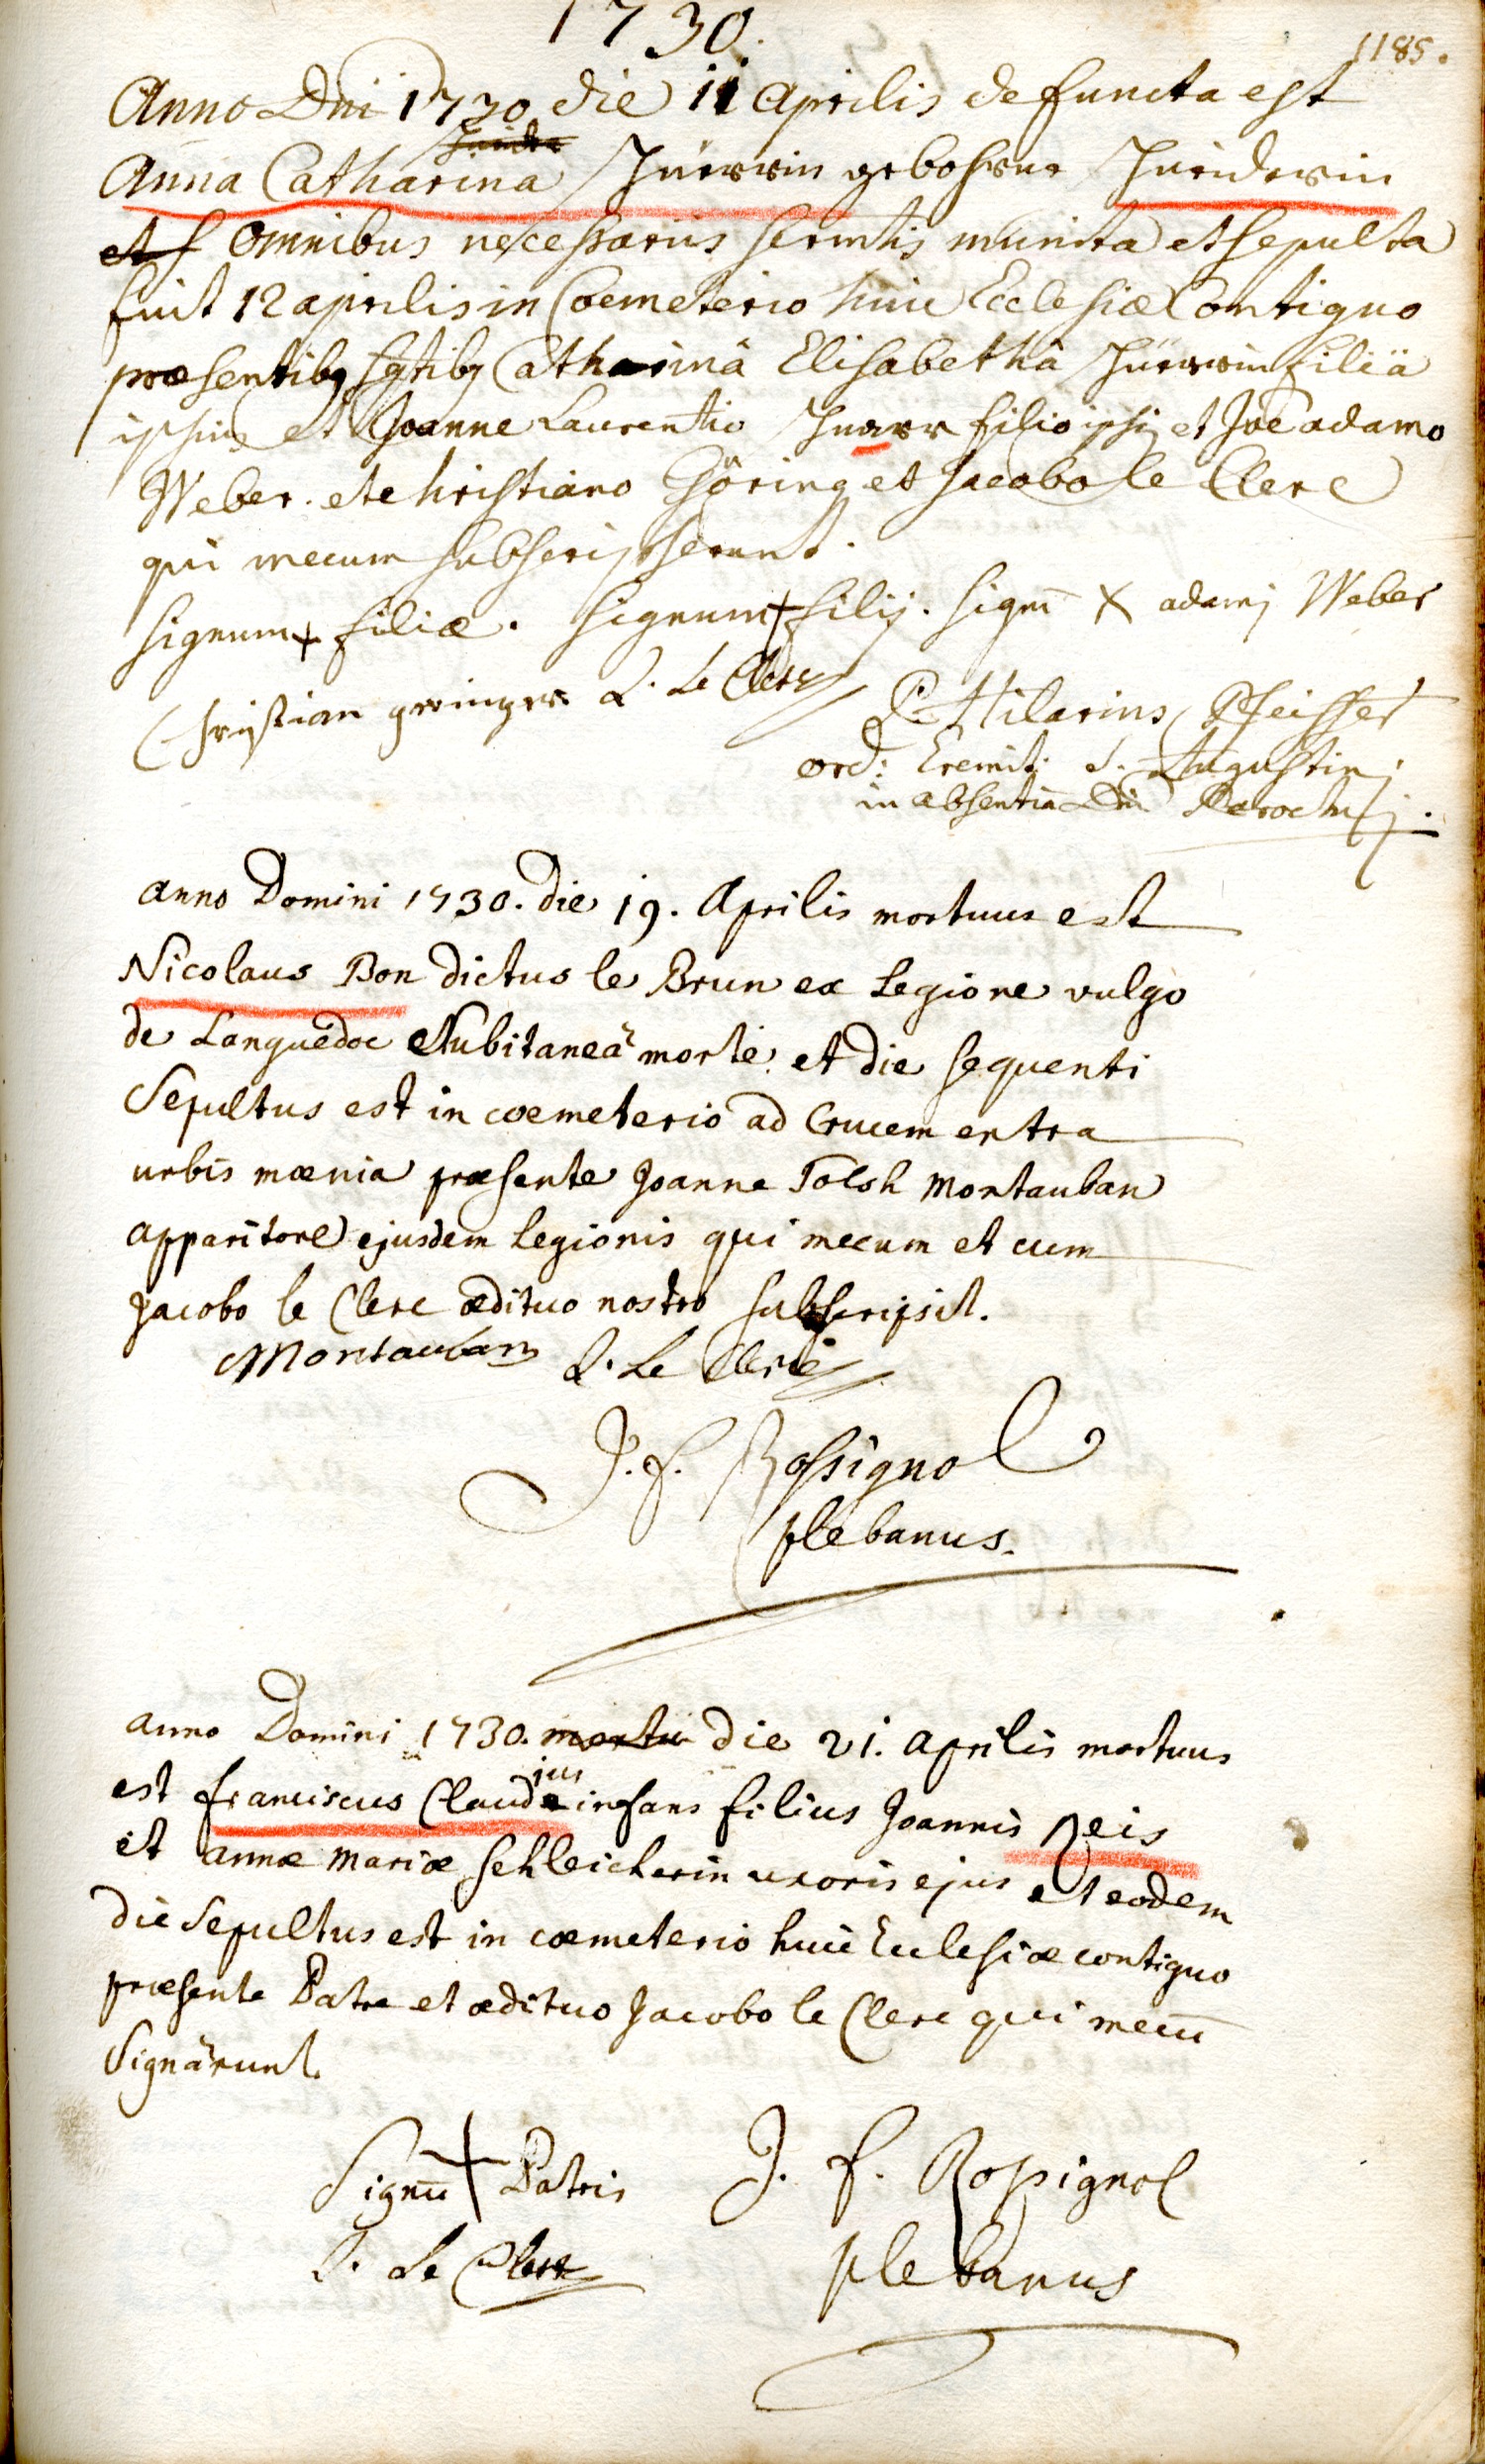 1730.
1185.
Anno Dni 1730 die 11 Aprilis defuncta est
Anna Catharina gebohrne
et omnibus necessariis sacmtis munita et sepulta
fuit 12 aprilis in Coemeterio huic Ecclesiæ Contiguo
præsentibq Catharinâ Elisabethâ filiâ
ipsius et Joanne Laurentio filio ipsiq et Joe adamo
Weber. et christiano Göring et Jacobo le Clerc
qui mecum subscripserunt.
signum + filiæ. signum + filij. signū X adami Weber
Christian geringer L. Le Clerc P. Hilarius Pfeiffer
ord: Eremit: S. Augustini
in absentia Dni Parochi.
anno Domini 1730. die 19. Aprilis mortuus est
Nicolaus Bon dictus le Brun ex Legione vulgo
de Languedoc subitaneâ morte. et die sequenti
Sepultus est in coemeterio ad Crucem extra
urbis mœnia præsente Joanne Tolsh Montauban
apparitore ejusdem Legionis qui mecum et cum
Jacobo le Clerc ædituo nostro subscripsit.
Montauban L. Le Clerc
J. f. Rossignol
plebanus.
anno Domini 1730. mortu die 21. aprilis mortuus
jus
est franciscus Claud infans filius Joannis Reis
et annæ mariæ schleicherin uxoris ejus et eodem
die Sepultus est in cœmeterio huic Ecclesiæ contiguo
præsente Patre et ædituo Jacobo le Clerc qui mecū
Signârunt.
Signū + Patris J. f. Rossignol
L. Le Clerc plebanus